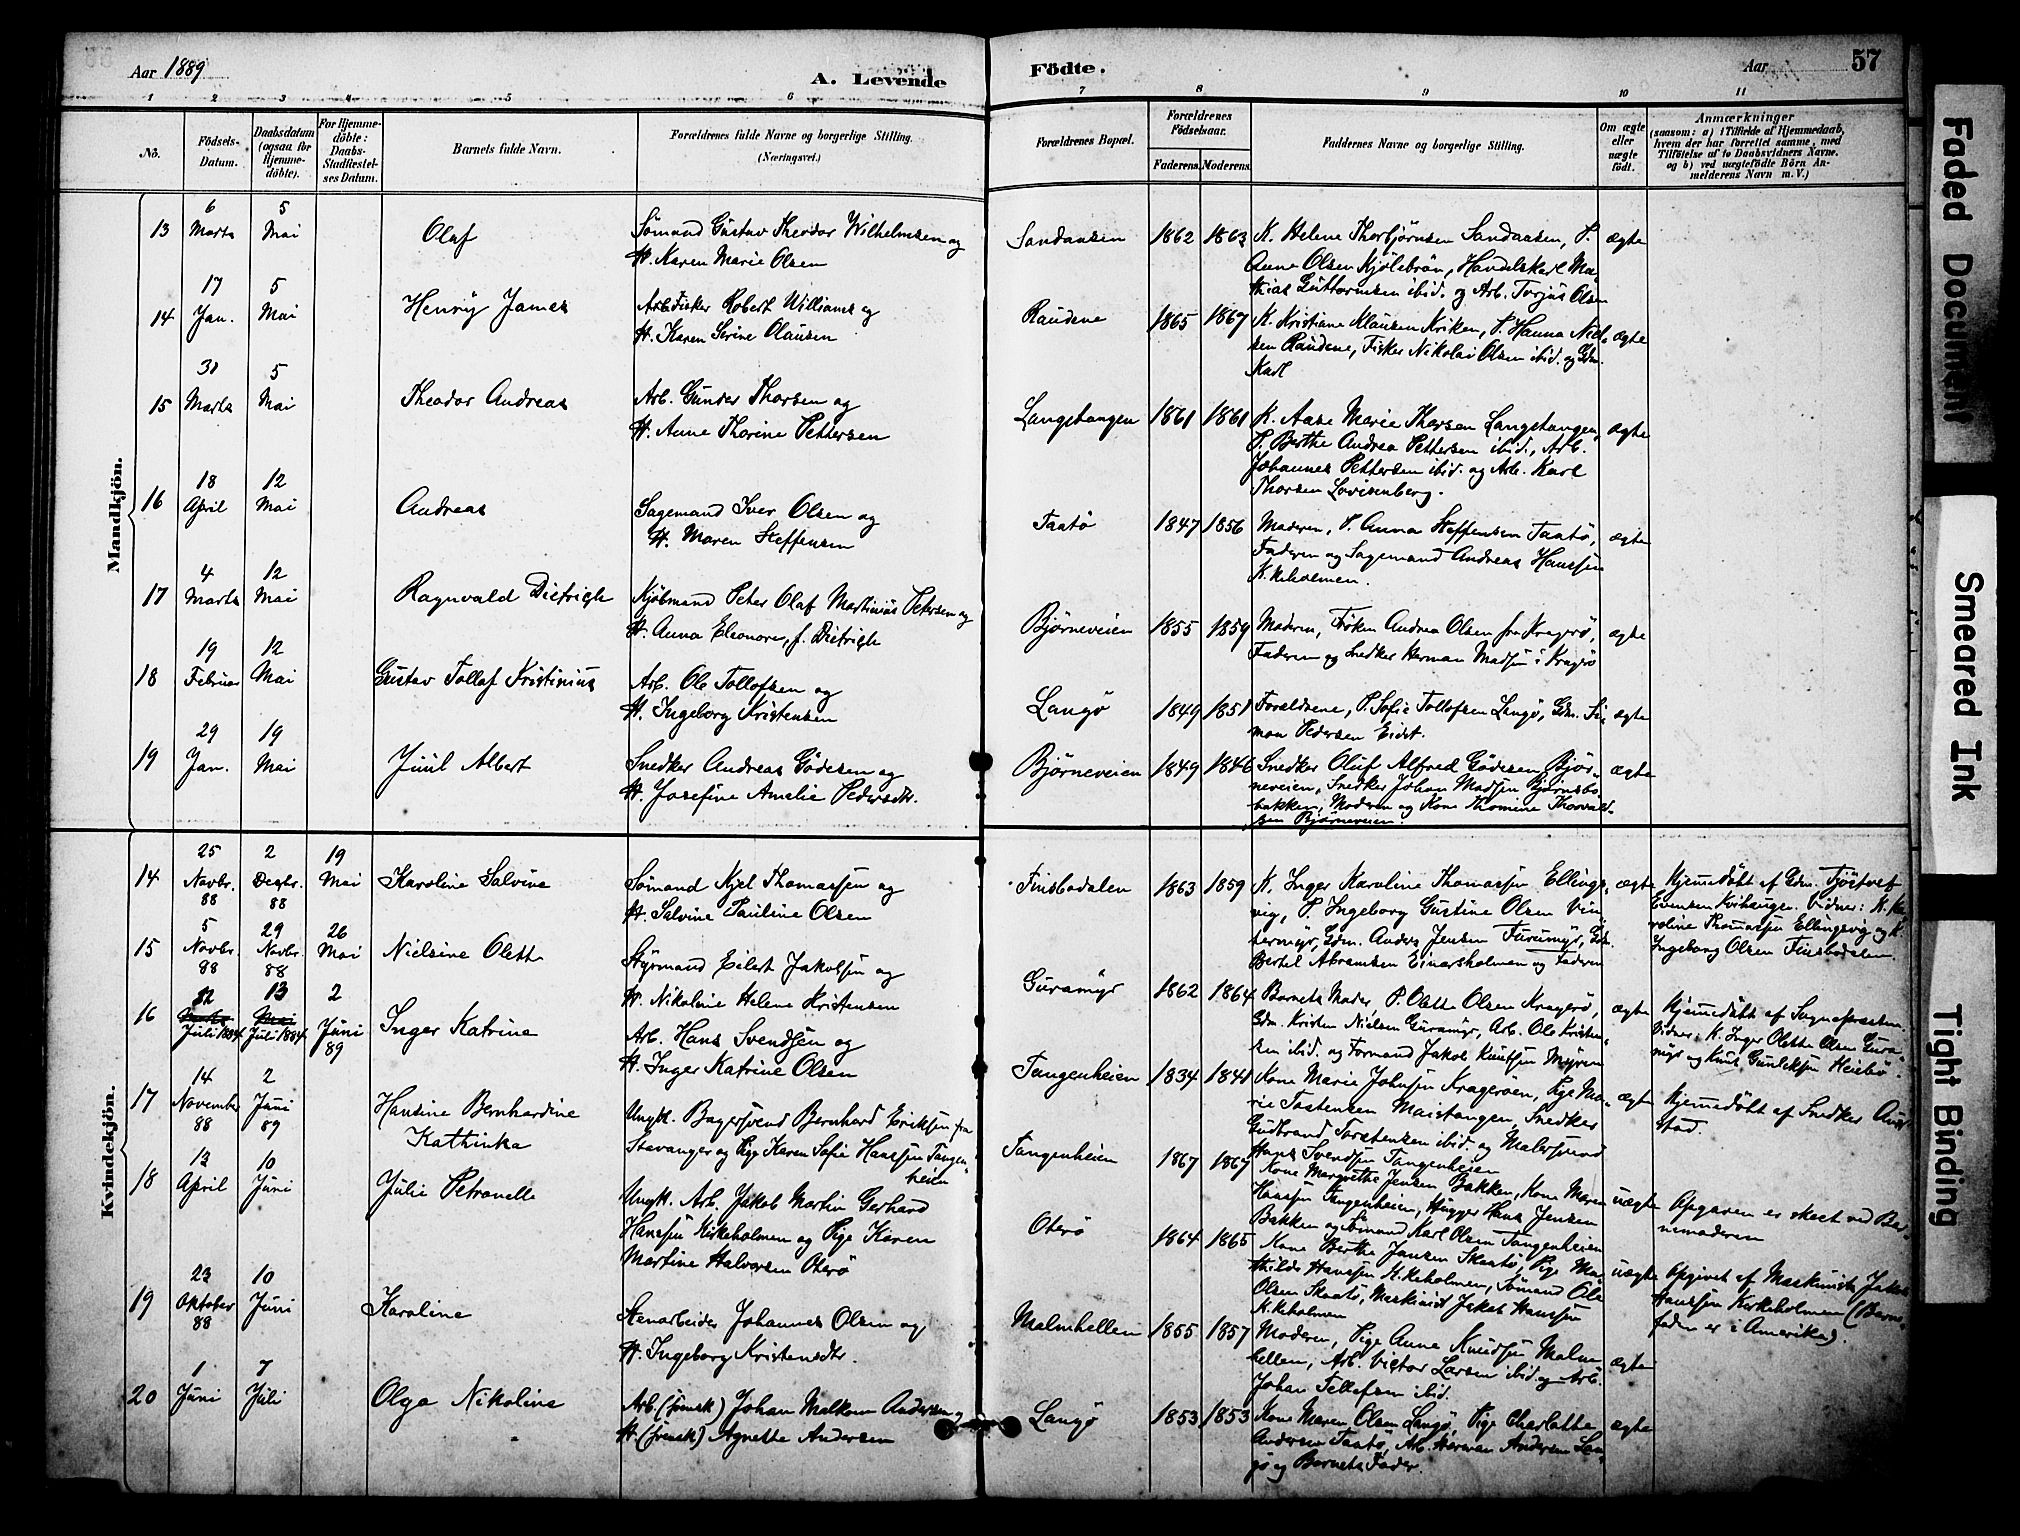 Aar 1889
A. Levende
Födte.
Aar
57
1 2 3 4 5 6 7 8 9 10 11
No.
Födsels-
Datum.
Daabsdatum
(ogsaa for
Hjemme-
döbte).
For Hjemme-
döbte:
Daabs-
Stadfæstel-
ses Datum.
Barnets fulde Navn.
Forældrenes fulde Navne og borgerlige Stilling.
(Næringsvei.)
Forældrenes Bopæl.
Forældrenes
Födselsaar.
Faderens. Moderens.
Faddernes Navne og borgerlige Stilling.
Om ægte
eller
uægte
födt.
Anmærkninger
(saasom: a) i Tilfælde af Hjemmedaab,
hvem der har forrettet samme, med
Tilföielse af to Daabsvidners Navne.
og b) ved uægtefödte Börn An-
melderens Navn m. V.)
Mandkjön.
13
6
Marts
5
Mai
Olaf
Sømand Gustav Theodor Wilhelmsen og
H. Karen Marie Olsen
Sandaasen
1862
1863
K. Helene Thorbjørnsen Sandaasen, P.
Anne Olsen Kjølebrøn, Handelskarl Ma
thias Guttormsen ibid. og Arb. Torjus Olsen
ægte
14
17
Jan.
5
Mai
Henry James
Arb. Robert Williams og
H. Karen Serine Olausen
Raudene
1865
1867
K. Kristiane Klausen Kriken, P. Hanna Niel-
sen Raudene, Fisker Nikolai Olsen ibid. og Gdm.
Karl
ægte
15
30
Marts
5
Mai
Theodor Andreas
Arb. Gunder Thorsen og
H. Anne Thorine Pettersen
Langstangen
1861
1861
K. Aase Marie Thorsen Langstangen,
P. Berthe Andrea Pettersen ibid., Arb.
Johannes Pettersen ibid. og Arb. Karl
Thorsen Lovisenberg.
ægte
16
18
April
12
Mai
Andreas
Sagemand Iver Olsen og
H. Maren Steffensen
Taatø
1847
1856
Moderen, P. Anna Steffensen Taatø,
Faderen og Sagemand Andreas Hanssen
Kirkeholmen.
ægte
17
4
Marts
12
Mai
Ragnvald Dietrich
Kjøbmand Peter Olaf Martinius Petersen og
H. Anna Eleonore, f. Dietrich
Bjørneveien
1855
1859
Moderen, Frøken Andrea Olsen fra Kragerø,
Faderen og Snedker Herman Madsen i Kragerø
ægte
18
19
Februar
12
Mai
Gustav Tollof Kristinius
Arb. Ole Tollofsen og
H. Ingeborg Kristensen
Langø
1849
1851
Forældrene, P. Sofie Tollofsen Langø, Gdm. Si-
mon Pedersen Eidet.
ægte
19
29
Jan.
19
Mai
Juul Albert
Snedker Andreas Gødesen og
H. Josefine Amelie Pedersdtr.
Bjørneveien
1849
1846
Snedker Oluf Alfred Gødesen Bjør-
neveien, Snedker Johan Madsen Bjørnsbo
bakken, Moderen og Kone Thomine Thorvald-
sen Bjørneveien.
ægte
Kvindekjön.
14
25
Novbr.
88
2
Decbr.
88
19
Mai
Karoline Salvine
Sømand Kjel Thomassen og
H. Salvine Pauline Olsen
Finsbodalen
1863
1859
K. Inger Karoline Thomassen Ellings-
vig, P. Ingeborg Gustine Olsen Vin
termyr, Gdm. Anders Jensen Furumyr, Gdm.
Bertel Abramsen Einarsholmen og Faderen
ægte
Hjemmedøbt af Gdm. Tjøstvef
Evensen Kvihaugen. Vidner: K. Ka-
roline Thomassen Ellingsvig og K.
Ingeborg Olsen Finsbodalen.
15
5
Novbr.
88
29
Novbr.
88
26
Mai
Nielsine Olette
Styrmand Eilert Jakobsen og
H. Nikoline Helene Kristensen
Guramyr
1862
1864
Barnets Moder, P. Olette Olsen Kragerø,
Gdm. Kristen Nielsen Guramyr, Arb. Ole Kristen-
sen ibid. og Formand Jakob Knutsen Myren
ægte
Hjemmedøbt af Sognepræsten.
Vidner: K. Inger Olette Olsen Gura-
myr og Knut Gunleksen Heiebø.
16
Juli 1884
13
Juli 1884
2
Juni
89
Inger Katrine
Arb. Hans Svendsen og
H. Inger Katrine Olsen
Tangenheien
1834
1841
Kone Marie Johnsen Kragerøen, Pige Ma-
rie Tostensen Maistangen, Snedker
Gudbrand Torstensen ibid. og Malersvend
Hans Svendsen Tangenheien
ægte
Hjemmedøbt af Snedker Aug.
Stad.
17
14
November
88
2
Juni
89
Hansine Bernhardine
Kathinka
Ungk. Bagersvend Bernhard Eriksen fra
Stavanger og Pige Karen Sofie Hanssen Tangen-
heien
Tangenheien
1867
1867
Kone Margrethe Jensen Bakken, Kone Maren
Hanssen Tangenheien, Hugger Hans Jensen
Bakken og Sømand Karl Olsen Tangenheien
uægte
Opgaven er skeet ved Bar-
nemoderen
18
13
April
10
Juni
Julie Petronelle
Ungk. Arb. Jakob Martin Gerhard
Hanssen Kirkeholmen og Pige Karen
Martine Halvorsen Oterø
Oterø
1864
1865
Kone Berthe Jansen Skaatø, Pige Ma-
thilde Hanssen Kirkeholmen, Sømand Ole
Olsen Skaatø, Maskinist Jakob Hanssen
Kirkeholmen
uægte
Opgivet af Maskinist Jakob
Hanssen Kirkeholmen (Barne-
faderen er i Amerika).
19
23
Oktober
88
10
Juni
Karoline
Stenarbeider Johannes Olsen og
H. Ingeborg Kristensdtr.
Malmhellen
1855
1857
Moderen, Pige Anne Knudsen Malm
hellen, Arb. Victor Larsen ibid. og Arb.
Johan Tellefsen ibid.
ægte
20
1
Juni
7
Juli
Olga Nikoline
Arb. (svensk) Johan Malkom Andersen og
H. (svensk) Agnette Andersen
Langø
1853
1853
Kone Maren Olsen Langø, Pige Charlotte
Andersen Taatø, Arb. Herman Andersen Lan-
gø og Barnets Fader.
ægte
Faded Document
Smeared Ink
Tight Binding